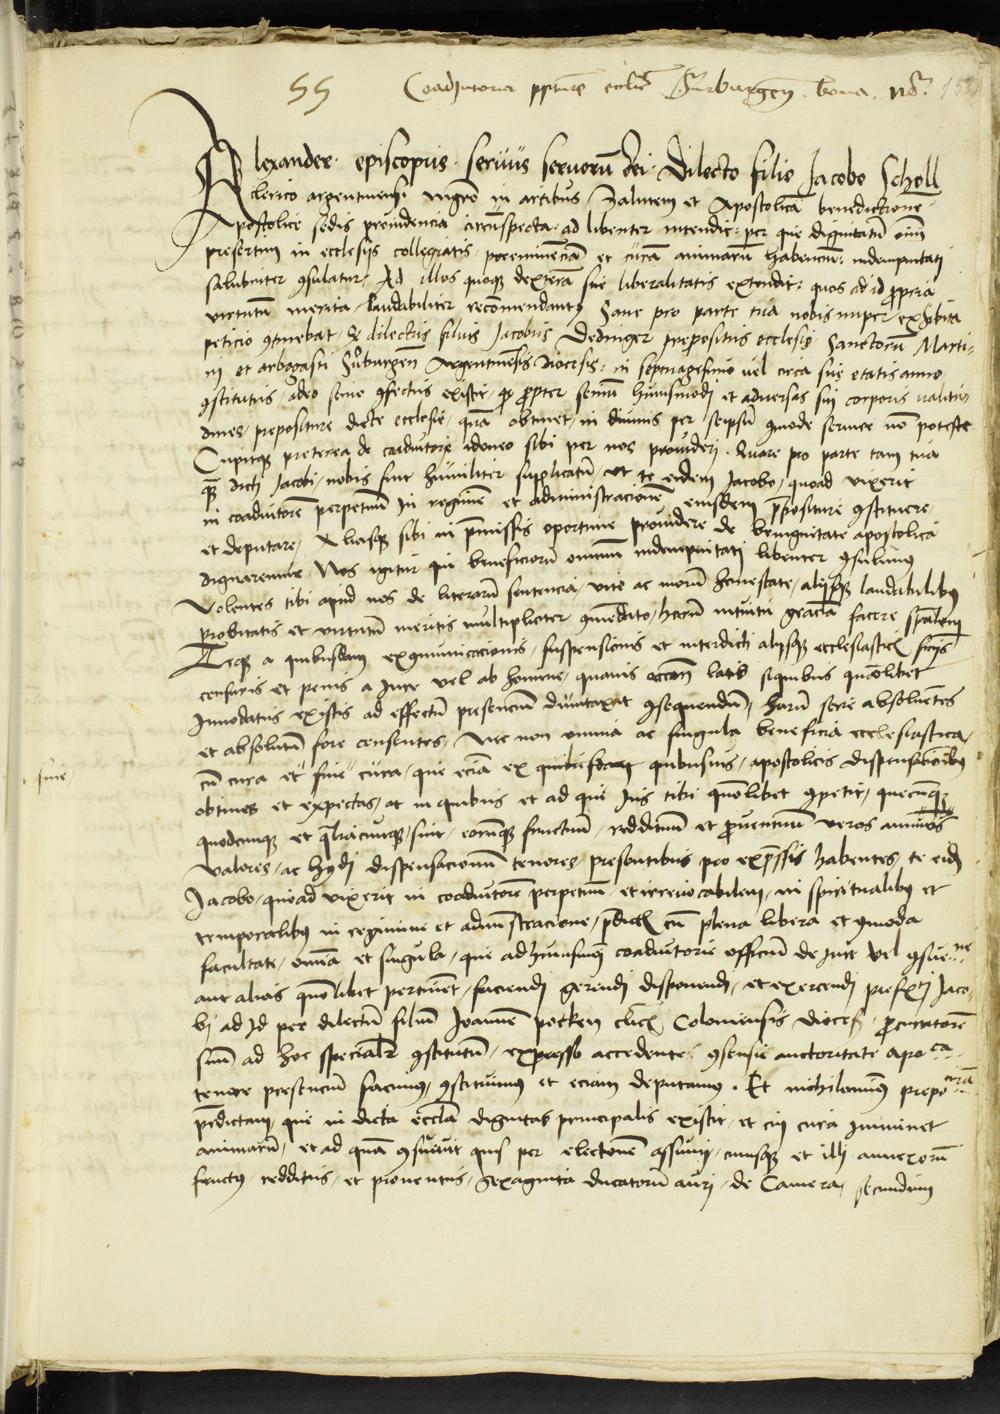 55 Coadjutoria ppture ecclie Surburgen. bona. no. 152
Alexander episcopus servus servorũ dei. Dilecto filio Jacobo Scholl
clerico argentinensi mgro in artibus, Salutem et Apostolicã benedictione
Apostolice sedis providencia circũspecta ad libenter intendit, per que dignitatũ om̃
presertim in ecclesijs collegiatis, preeminẽciã et curã animarũ habencũ, indempnitati
salubriter ꝯsulatur, Ad illos quoque dexterã sue liberalitatis extendit, quos ad id propria
virtutũ merita laudabiliter recõmendant, Sane pro parte tua nobis nuper exhibita
peticio ꝯtinebat, ꝙ dilectus filius Jacobus Dedinger prepositus ecclesie Sanctorũ Marti-
ni et arbogasti Surburgeñ Argentinẽsis diocesis, in septuagesimo vel circa sue etatis anno
ꝯstitutus, adeo senio ꝯfectus existit, ꝙ propter seniũ huiusmodi et adversas sui corporis valitu-
dines, prepositure dicte ecclesie, quã obtinet, in divinis per seipsũ ꝯmode servire nõ poteste
Cupitqꝫ preterea de coadiutore idoneo sibi per nos provideri. Quare pro parte tam tua
qꝫ dicti Jacobi, nobis fuit humiliter supplicatũ, ut te eidem Jacobo, quoad vixerit
in coadiutorẽ perpetuũ in regimẽ et administracionẽ eiusdem prepositure ꝯstituere
et deputare, Aliasqꝫ sibi in p̃missis oportune providere de benignitate apostolica
dignaremur Nos igitur qui beneficiorũ omniũ indempnitati libenter ꝯsulimus
Volentes tibi apud nos de literarũ sciencia, vite ac morũ honestate, alijsqꝫ laudabilibus
probitatis et virtutũ meritis multipliciter ꝯmẽdato, horũ intuitu graciã facere sp̃alem
Teqꝫ a quibusdam exꝯmunicacionis, suspensionis et interdicti alijsqꝫ ecclesiastic̃ sn̄ijs
censuris et penis a Jure vel ab homine, quavis occõne latis siquibus quõlibet
Innodatus existis ad effectũ presenciũ duntaxat ꝯsequendũ, harũ serie absolvẽtes
et absolutũ fore censentes, Nec non omnia ac singula beneficia ecclesiastica,
sine
cũ cura et sine cura, que eciã ex quibusvis, apostolicis dispensacionibus
obtines et expectas, ac in quibus et ad que Jus tibi quõlibet ꝯpetit, quecũqꝫ
quodcunqꝫ et qualiacunqꝫ, sint, eorũqꝫ fructuũ, reddituũ et proventuũ veros annuos
valores, ac hmõi dispensacionũ tenores, presentibus pro expressis habentes, te eidẽ
Jacobo, quoad vixerit in coadiutorẽ perpetuũ et irrevocabilem, in spiritualibus et
temporalibus in regimine et administracione, p̃dict cũ plena libera et ꝯmoda
facultate, om̃ia et singula, que ad huiusmõi coadiutorie officiũ de jure vel ꝯsue..ne
aut alias quõlibet pertinẽt, faciendi gerendi disponendi, et exercendi prefati Jaco-
bi ad Id per dilectũ filiũ Joannẽ potken clici Coloniensis dioces̃, procuratorẽ
suũ ad hoc specialr̃ ꝯstitutũ, expresso accedente ꝯsensu auctoritate apo ca
tenore presenciũ facimus, ꝯstituimus et eciam deputamus. Et nichilominus prepo turã
p̃dictam, que in dicta ecclia dignitas principalis existit, et cui cura imminet
animarũ, et ad quã ꝯsuevit quis per electionẽ assumi, cuiusqꝫ et illi annexorũ
fructus, redditus, et proventus, sexaginta ducatorũ auri, de Camera, secundum